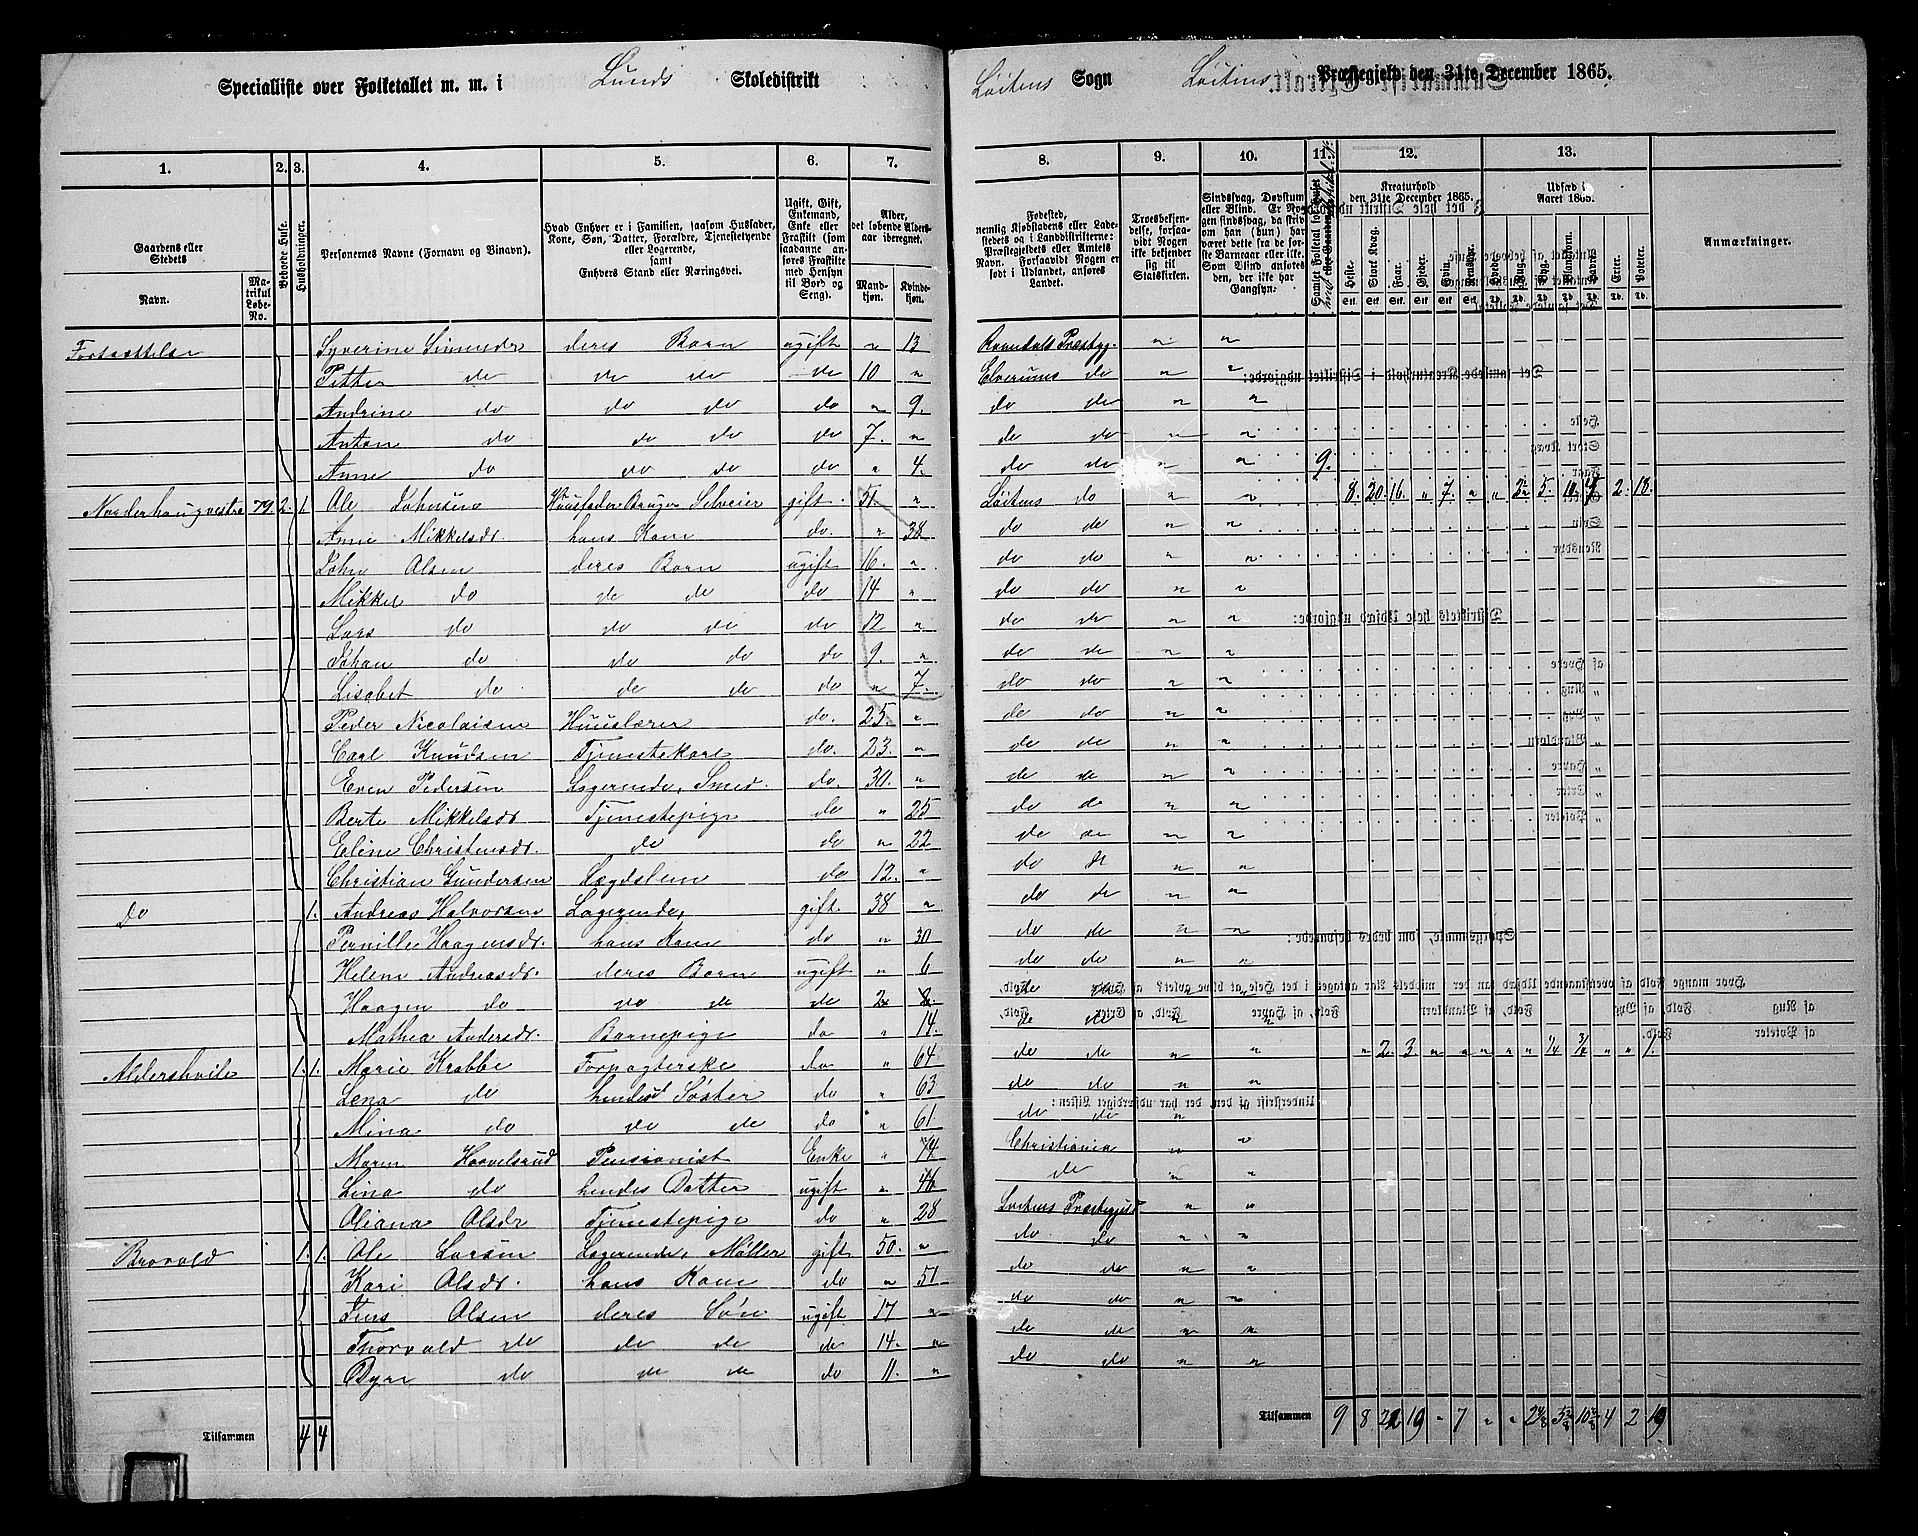 Specialliste over Folketallet m. m. i Lunds Skoledistrikt Løitens Sogn Løitens Præstegjeld den 31te December 1865.
1. 2. 3. 4. 5. 6. 7. 8. 9. 10. 11. 12. 13.
Gaardens eller Stedets
Navn. Matrikul Løbe-No.
Beboede Huse.
Husholdninger.
Personernes Navne (Fornavn og Binavn).
Hvad Enhver er i Familien, saasom Husfader, Kone, Søn, Datter, Forældre, Tjenestetyende eller Logerende, samt Enhvers Stand eller Næringsvei.
Ugift, Gift, Enkemand, Enke eller Fraskilt (som saadanne anføres Fraskilte med Hensyn til Bord og Seng).
Alder, det løbende Aldersaar iberegnet.
Mandkjøn. Kvindekjøn.
Fødested, nemlig Kjøbstadens eller Ladestedets og i Landdistrikterne: Præstegjeldets eller Amtets Navn. Forsaavidt Nogen er født i Udlandet, anføres Landet.
Troesbekjendelse, forsaavidt Nogen ikke bekjender sig til Statskirken.
Sindssvag, Døvstum eller Blind. Er Nogen sindssvag, da skrives om han (hun) har været dette fra de første Barneaar eller ikke. Som Blind anføres den, der ikke har Gangsyn.
Kreaturhold den 31te December 1865.
Heste. Stort Kvæg. Faar. Gjeder. Svin. Rensdyr.
Udsæd i Aaret 1865.
Hvede. Rug. Byg. Blandkorn. Havre. Erter. Poteter.
Anmærkninger.
Fortsættelse Syverine Simensdr deres Barn ugift " 13 Romedals Præstgj. " "
Petter do do do do 10 " Elverums do " "
Andrine do do do do " 9. do do " "
Anton do do do do 7. " do do " "
Anne do do do do " 4. do do " " 9.
Norderhougvestre 79 2. 1. Ole Johnsen Huusfader Bruger Selveier gift 51. " Løitens do " " 8. 20. 16. " 7. " "
Anne Mikkelsdr. hans Kone do. " 38 do do " "
John Olsen deres Barn ugift 16. " do do " "
Mikkel do do do do 14 " do do " "
Lars do do do do 12 " do do " "
Johan do do do do 9. " do do " "
Lisabet do do do do " 7. do do " "
Peder Nicolaisen Huuslærer do. 25. " do do " "
Carl Knudsen Tjenestekarl do. 23. " do do " "
Even Pedersen Logerende, Smed do. 30. " do do " "
Berte Mikkelsdr Tjenestepige do " 25 do do " "
Eline Christensdr. do do " 22 do do " "
Christian Gundersen Lægdslem do 12. " do do " "
Do 1. Andreas Halvorsen Logerende, gift 38 " do do " "
Pernille Haagensdr. hans Kone do " 30 do do " "
Helene Andreasdr. deres Barn ugift " 6 do do " "
Haagen do do do do 2 do do " "
Mathea Andersdr. Barnepige do " 14. do do " "
Aldershvile 1. 1. Marie Krabbe Forpagterske do " 64 do do " " " 2. 3. " " " " " 1/4 " " 1.
Lena do hendes Søster do " 63 do do " "
Mina do do do do " 61 do do "
Maren Haavelsrud Pensionist Enke " 74 Christiania " "
Lina do hendes Datter ugift " 46 do " "
Oliana Olsdr Tjenestepige do " 28 Løitens Præstegjeld " "
Brovold 1. 1. Ole Larsen Logerende, Møller gift 50. " do do " "
Kari Olsdr. hans Kone do " 51 do do " "
Jens Olsen deres Søn ugift 17 " do do " "
Thorvald do do do do 14. " do do " "
Dyre do do do do 11. " do do " "
Tilsammen 4 4
Tilsammen 9 8 22 19 - 7 " " 4 2 19